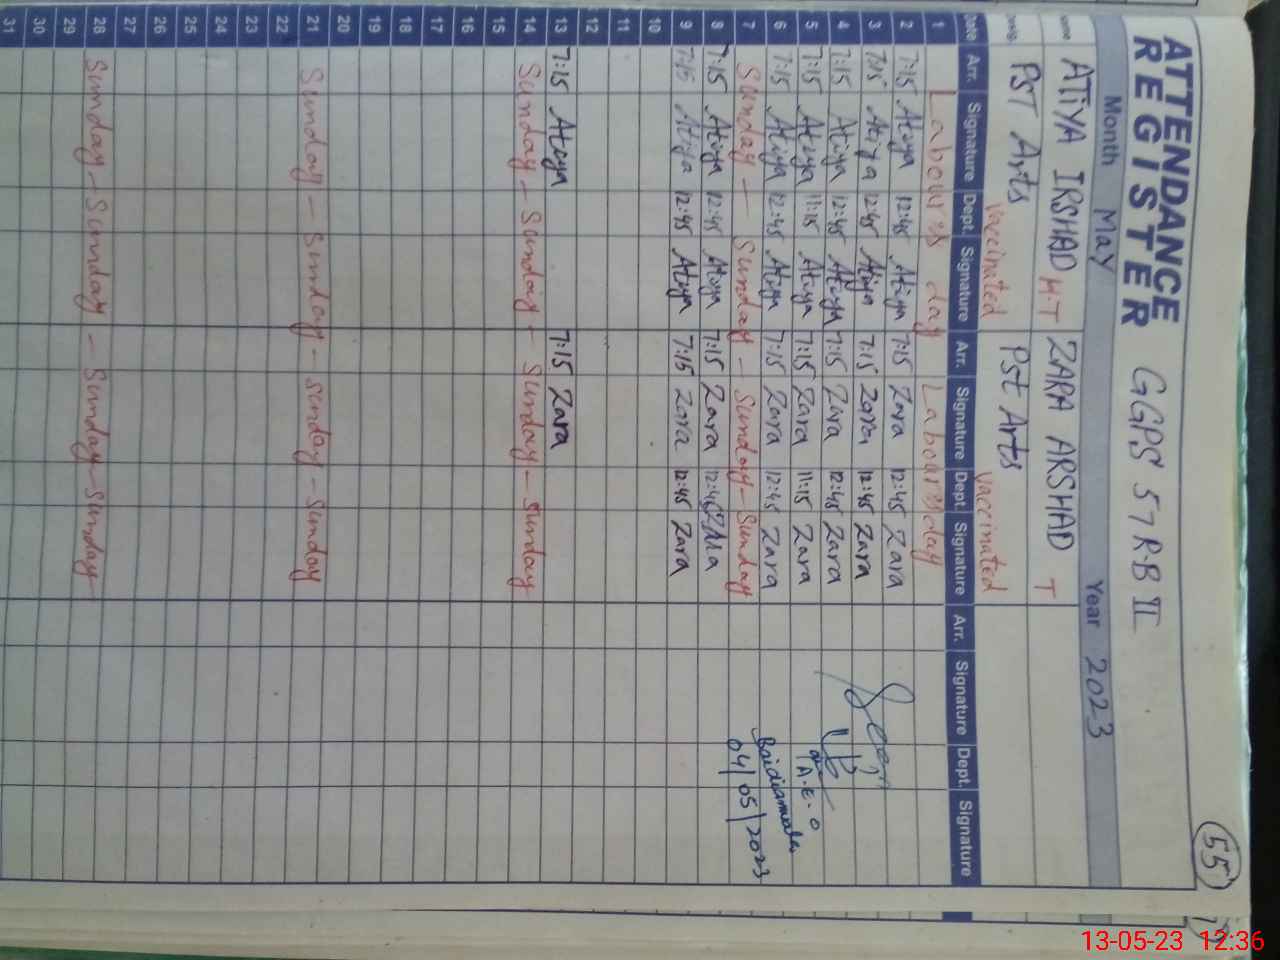 55
ATTENDANCE
REGISTER GGPS 57 R-B II
Month May Year 2023
Name ATIYA IRSHAD H.T ZARA ARSHAD T
Desig. PST Arts vaccinated Pst Arts vaccinated
Date Arr. Signature Dept. Signature Arr. Signature Dept. Signature Arr. Signature Dept. Signature
1 Labour,s day Labour,s day
2 7:15 Atiya 12:45 Atiya 7:15 Zara 12:45 Zara
3 7:15 Atiya 12:45 Atiya 7:15 Zara 12:45 Zara
4 7:15 Atiya 12:45 Atiya 7:15 Zara 12:45 Zara
5 7:15 Atiya 11:15 Atiya 7:15 Zara 11:15 Zara
A.E.O
6 7:15 Atiya 12:45 Atiya 7:15 Zara 12:45 Zara
7 Sunday — Sunday — Sunday — Sunday
04/05/2023
8 7:15 Atiya 12:45 Atiya 7:15 Zara 12:45 Zara
9 7:15 Atiya 12:45 Atiya 7:15 Zara 12:45 Zara
10
11
12
13 7:15 Atiya 7:15 Zara
14 Sunday — Sunday — Sunday — Sunday
15
16
17
18
19
20
21 Sunday — Sunday — Sunday — Sunday
22
23
24
25
26
27
28 Sunday — Sunday — Sunday — Sunday
29
30
31
13-05-23 12:36